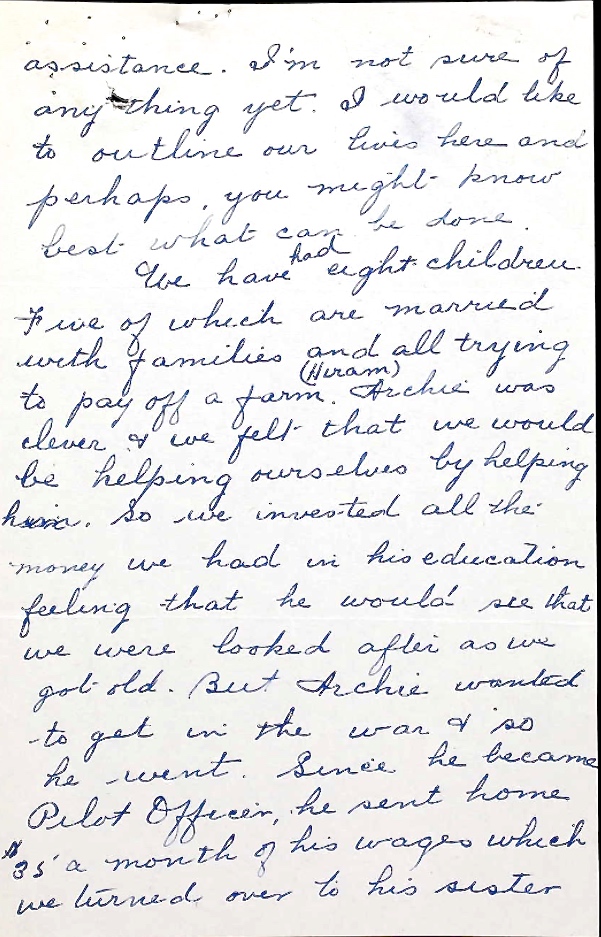 assistance. I'm not sure of
any thing yet. I would like
to outline our lives here and
perhaps, you might know
best what can be done.
We have had eight children.
Five of which are married
with families and all trying
to pay off a farm. (Hiram) Archie was
clever & we felt that we would
be helping ourselves by helping
him. So we invested all the
money we had in his education
feeling that he would see that
we were looked after as we
got old. But Archie wanted
to get in the war & so
he went. Since he became
Pilot Officer, he sent home
$35 a month of his wages which
we turned over to his sister